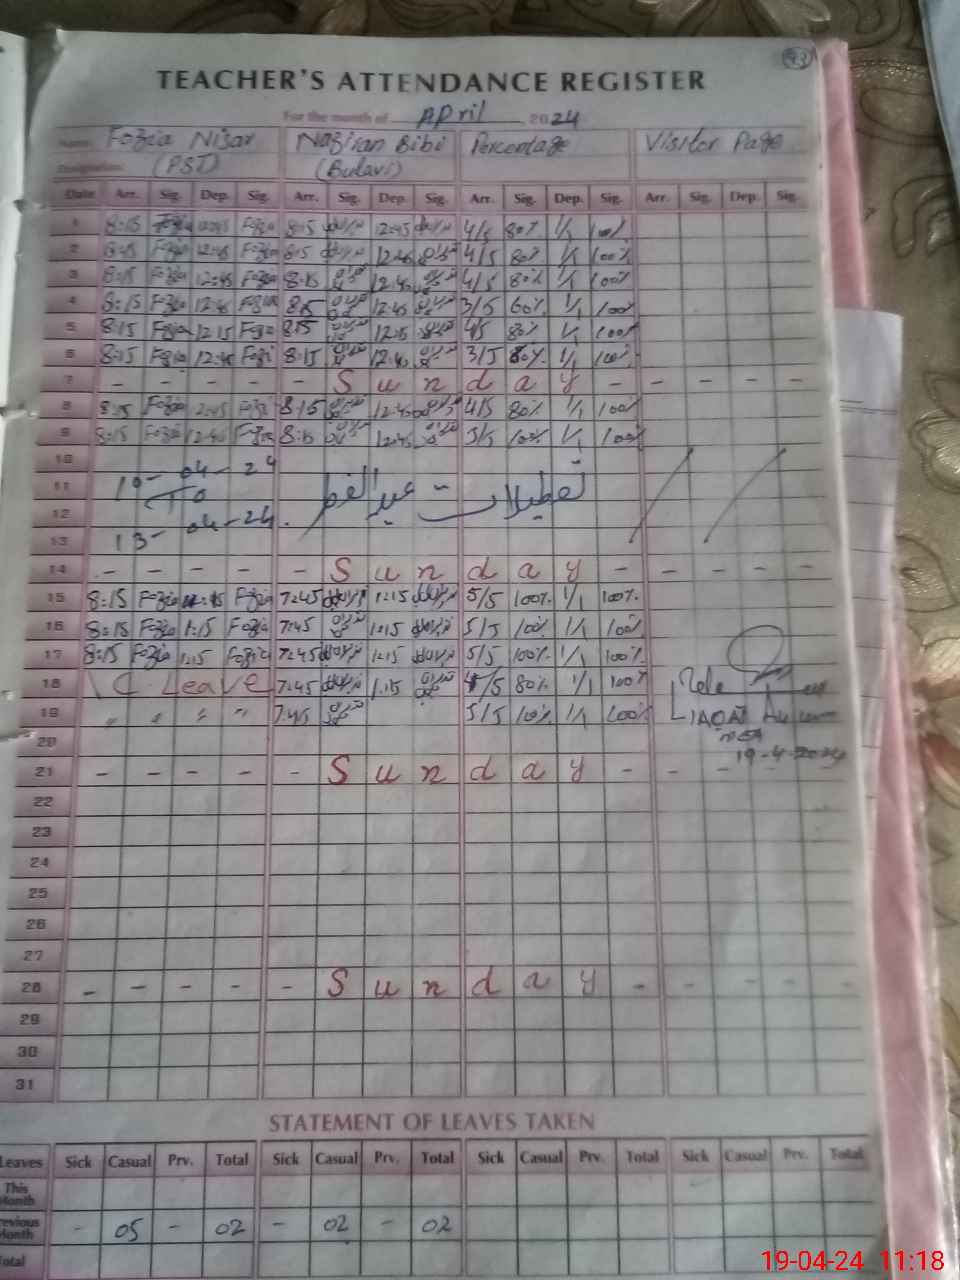 93
TEACHER'S ATTENDANCE REGISTER
For the month of April 2024
Name: Fozia Nisar Bibi Percentage Visitor Page
Designation: (PST)
Date Arr. Sig. Dep. Sig. Arr. Sig. Dep. Sig. Arr. Sig. Dep. Sig. Arr. Sig. Dep. Sig.
1 8:15 Fozia 12:45 Fozia 8:15 12:45 4/5 80% 1/1 100%
2 8:15 Fozia 12:45 Fozia 8:15 12:45 4/5 80% 1/1 100%
3 8:15 Fozia 12:45 Fozia 8:15 12:45 4/5 80% 1/1 100%
4 8:15 Fozia 12:45 Fozia 8:15 12:45 3/5 60% 1/1 100%
5 8:15 Fozia 12:15 Fozia 8:15 12:45 4/5 80% 1/1 100%
6 8:15 Fozia 12:45 Fozi 8:15 12:45 3/5 1/1 100%
7 - - - - - S u n d a y - - - - -
8 8:15 Fozia 12:45 Fozi 8:15 12:45 4/5 80% 1/1 100%
9 8:15 Fozia 12:45 Fozia 8:15 12:45 5/5 100% 1/1 100%
10
11 10-04-24 To تعطیلات عیدالفطر
12
13 13-04-24
14 - - - - - S u n d a y - - - - -
15 8:15 Fozia Fozia 7:45 1:15 5/5 100% 1/1 100%
16 8:15 Fozia 1:15 Fozia 7:45 1:15 5/5 100% 1/1 100%
17 8:15 Fozia 1:15 Fozia 7:45 1:15 5/5 100% 1/1 100%
18 C. Leave 7:45 1:15 4/5 80% 1/1 100%
19 " " " " 7:45 5/5 100% 1/1 100% LIAQAT
MEA
20 19-4-2024
21 - - - - - S u n d a y - - - - -
22
23
24
25
26
27
28 - - - - - S u n d a y - - - - -
29
30
31
STATEMENT OF LEAVES TAKEN
Leaves Sick Casual Prv. Total Sick Casual Prv. Total Sick Casual Prv. Total Sick Casual Prv. Total
This Month
Previous Month - 05 - 02 - 02 - 02
Total
19-04-24 11:18